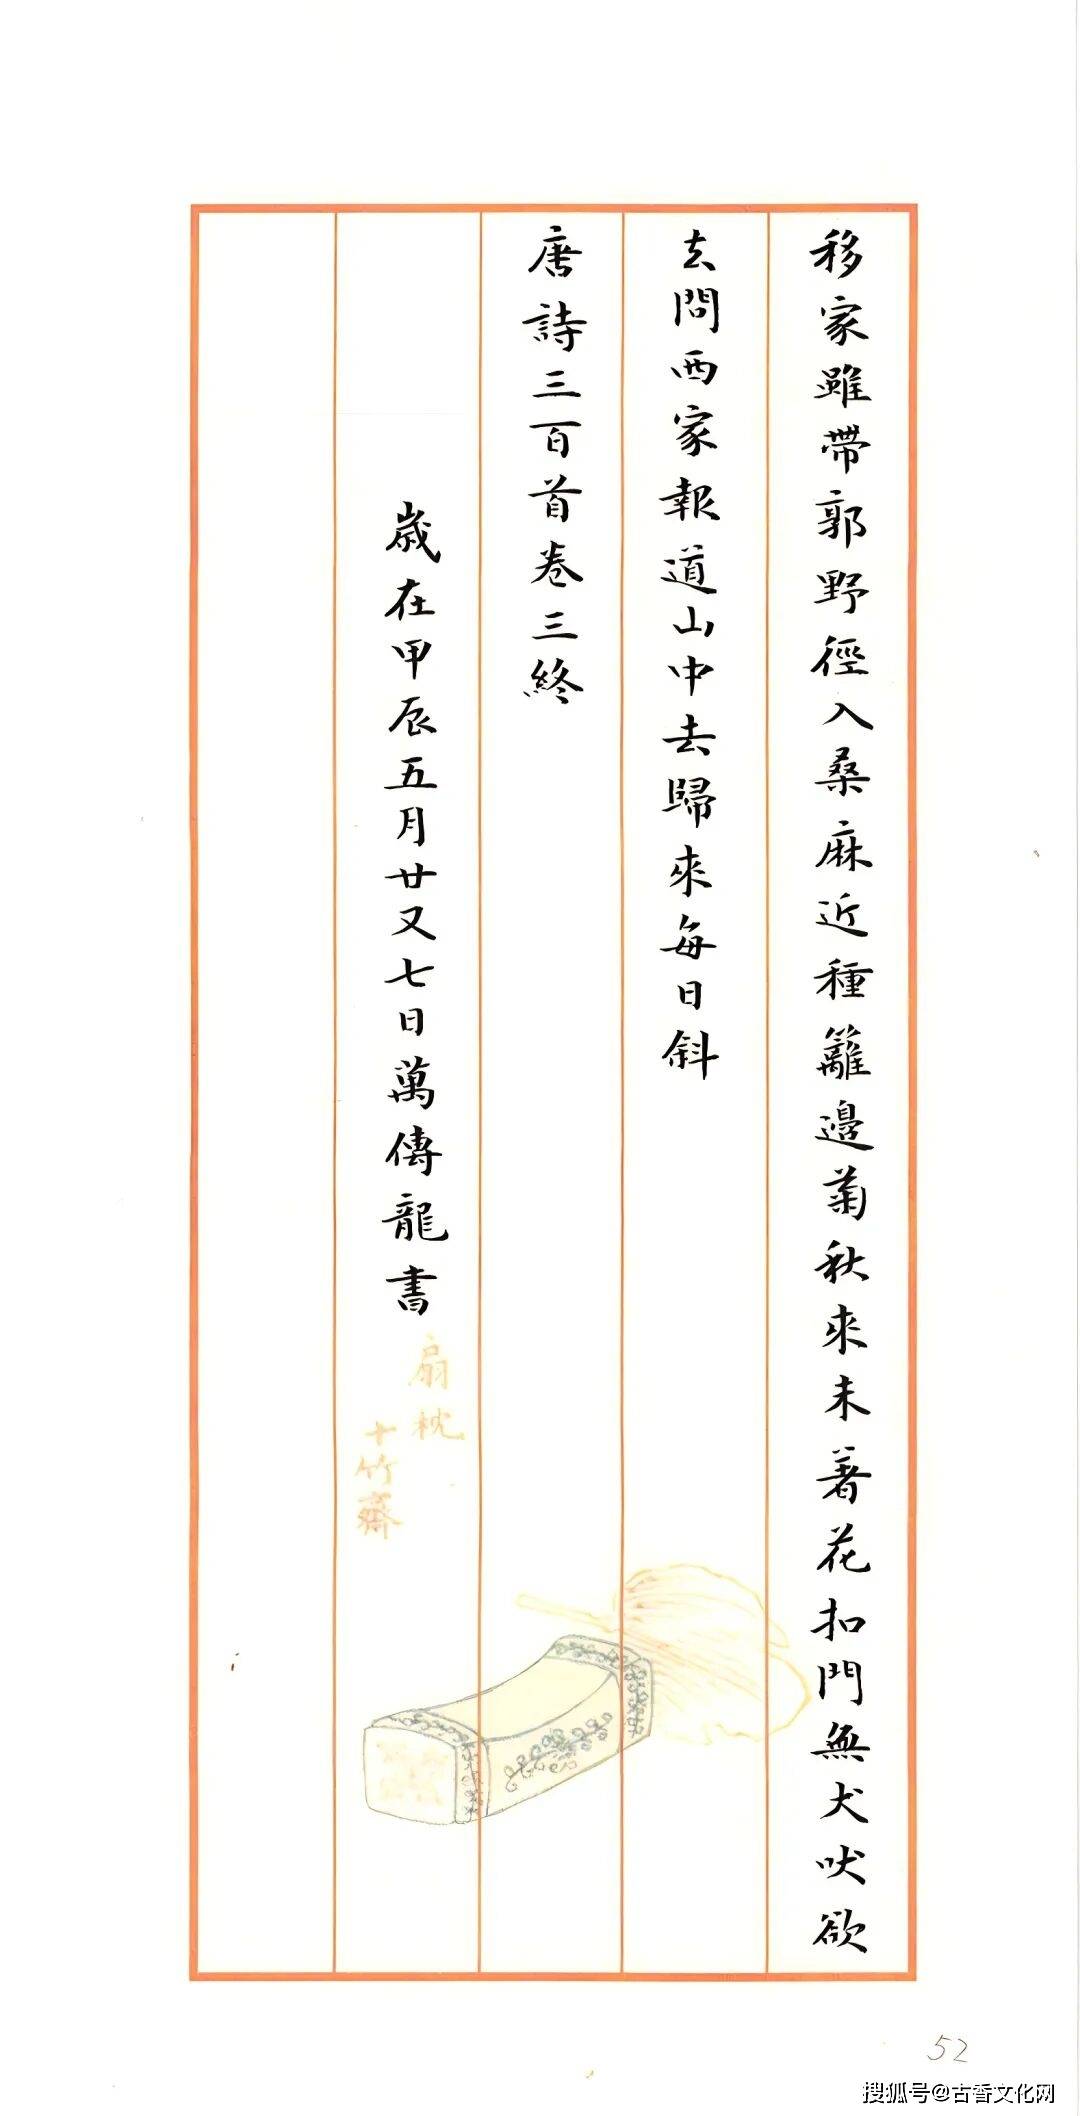 移家雖帶郭野徑入桑麻近種籬邊菊秋來未著花扣門無犬吠欲
去問西家報道山中去歸來每日斜
唐詩三百首卷三終
歲在甲辰五月廿又七日萬傳龍書
扇枕
十竹齋
52
搜狐号@古香文化网